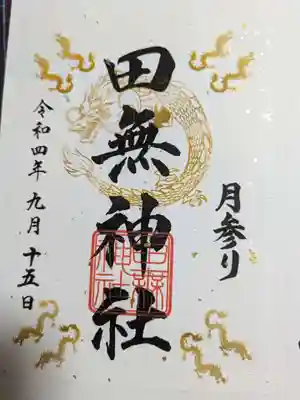 月参り
田無神社
令和四年 九月 十五日
田無神社